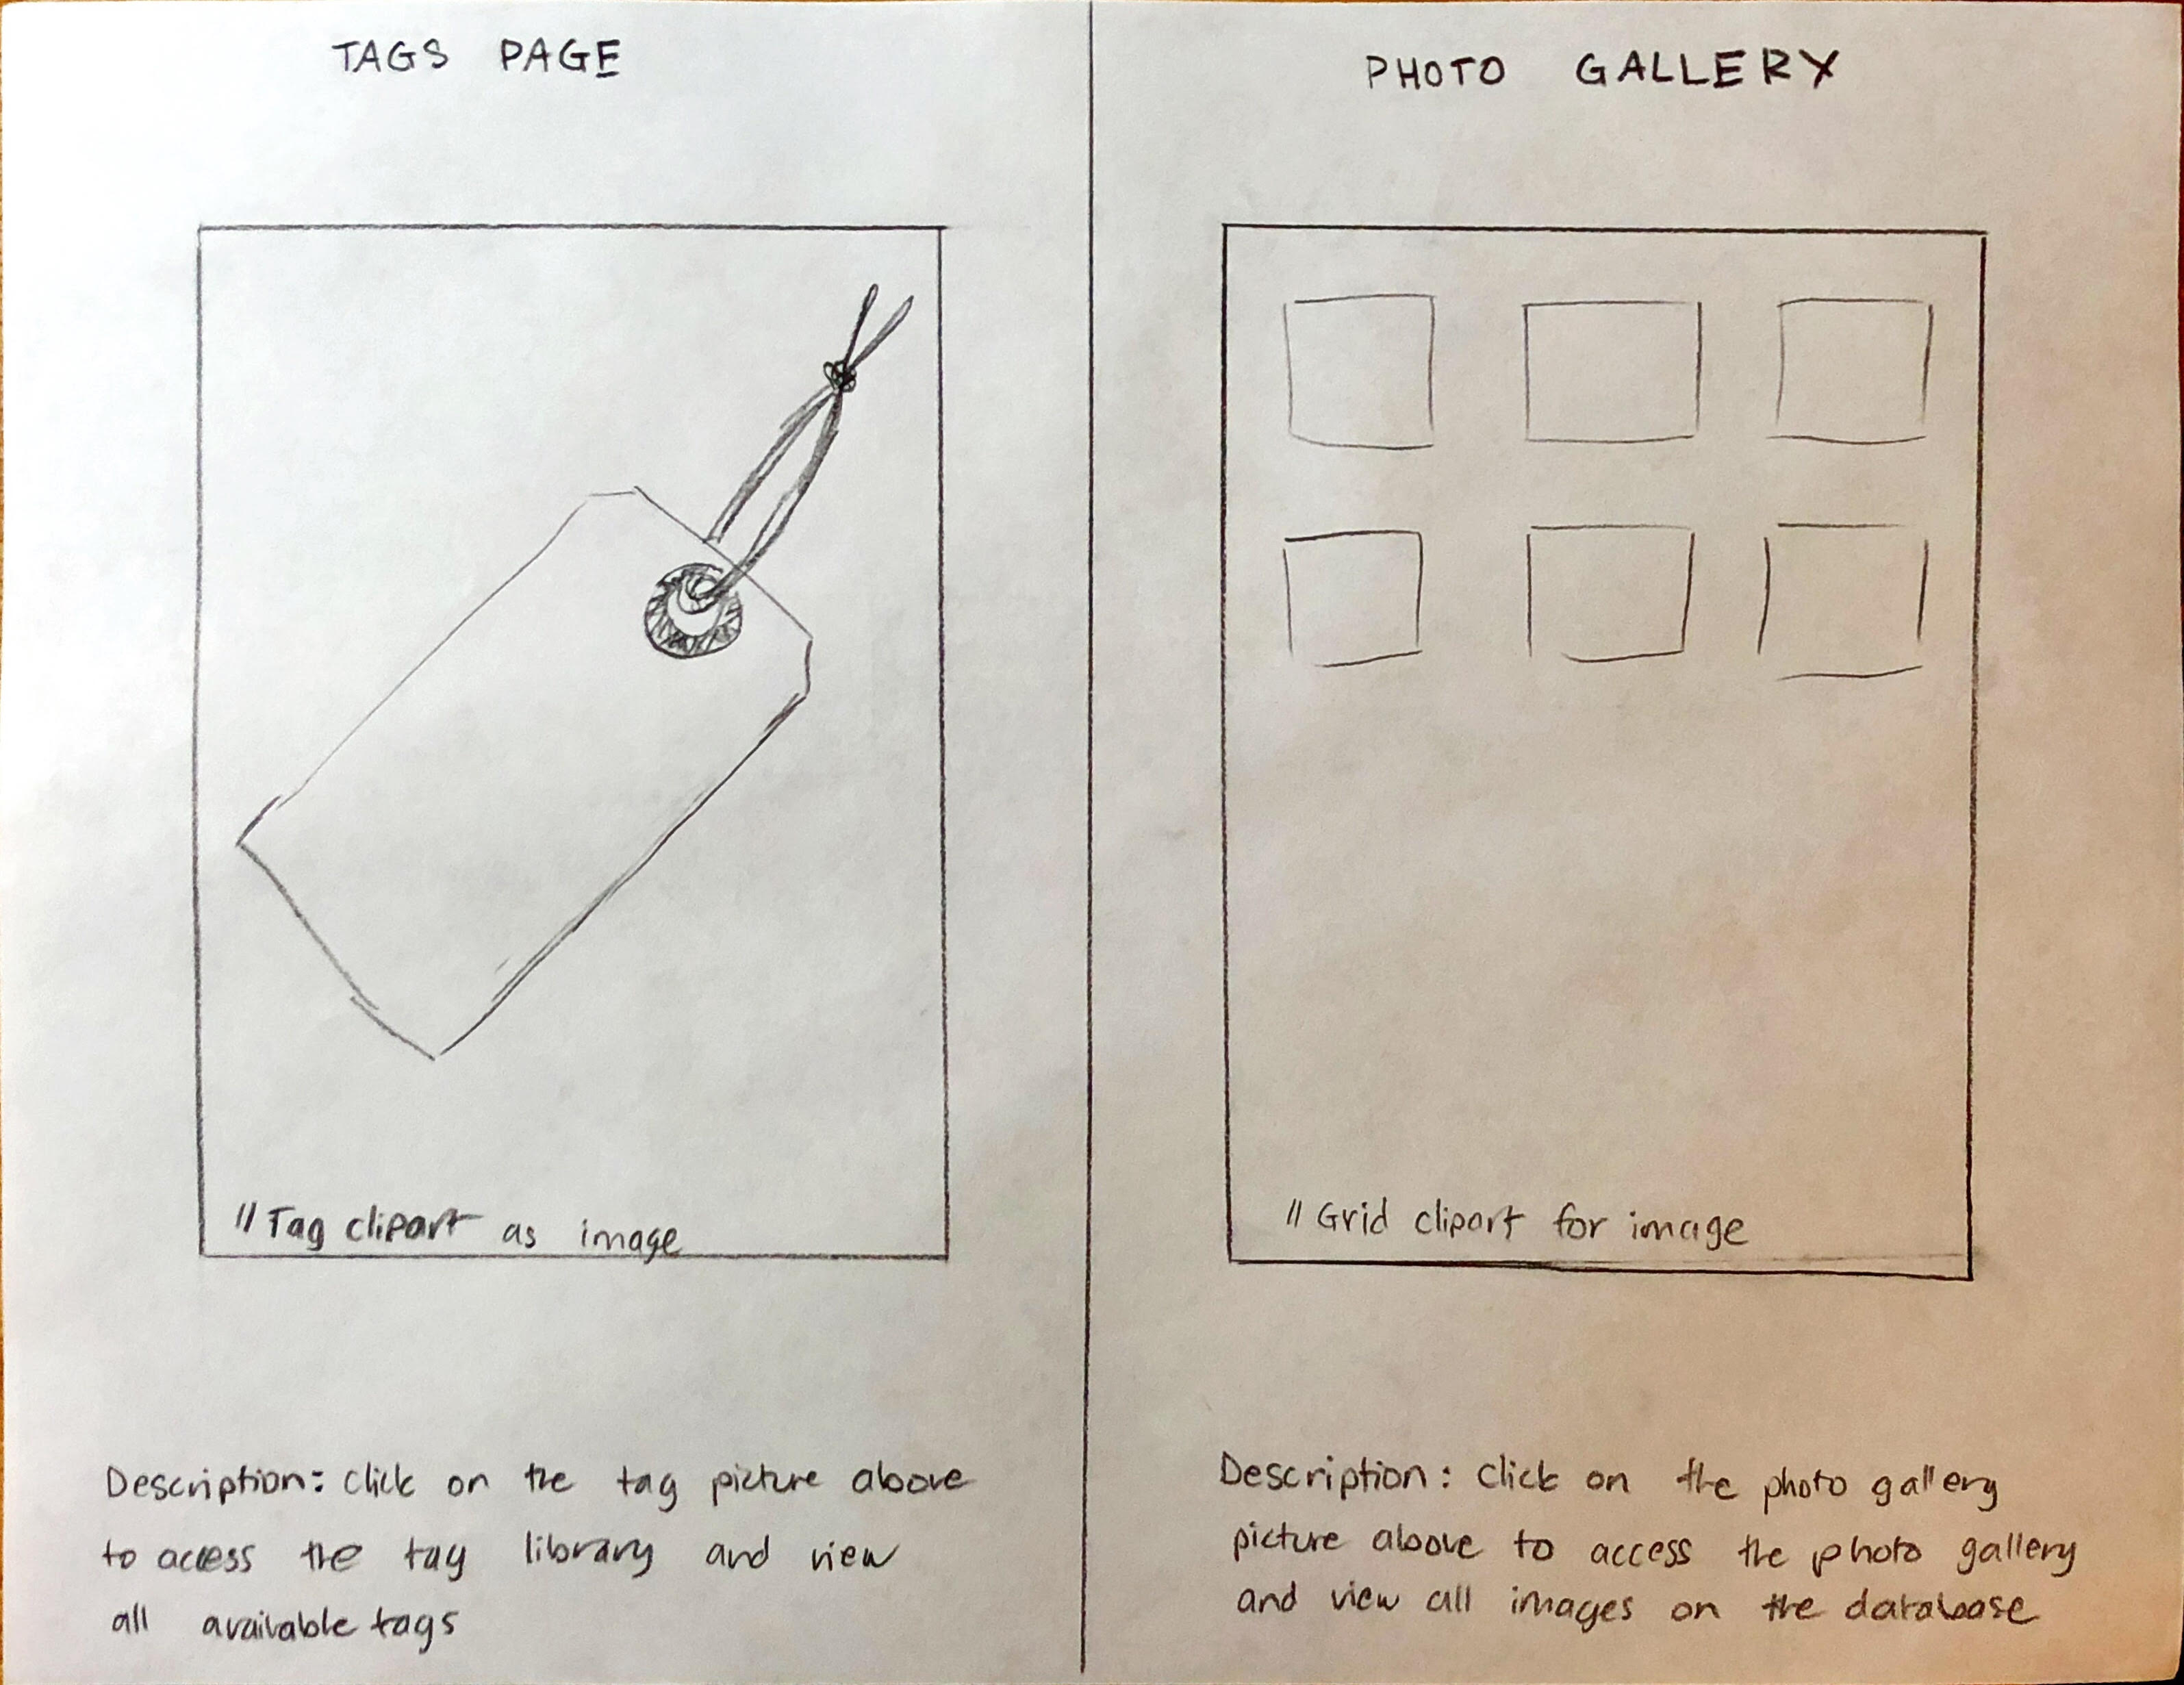 TAGS PAGE
// Tag clipart as image
Description: click on the tag picture above
to access the tag library and view
all available tags
PHOTO GALLERY
// Grid clipart for image
Description: click on the photo gallery
picture above to access the photo gallery
and view all images on the database